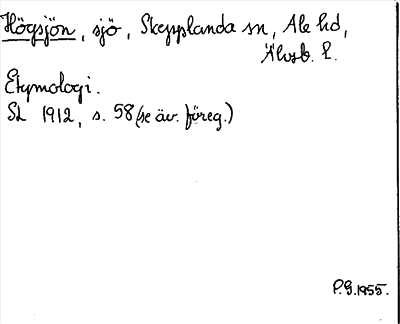 Högsjön, sjö, Skepplanda sn, Ale hd,
Älvsb. l.
Etymologi.
SL 1912, s. 58 (se äv. föreg.)
P.G. 1955.